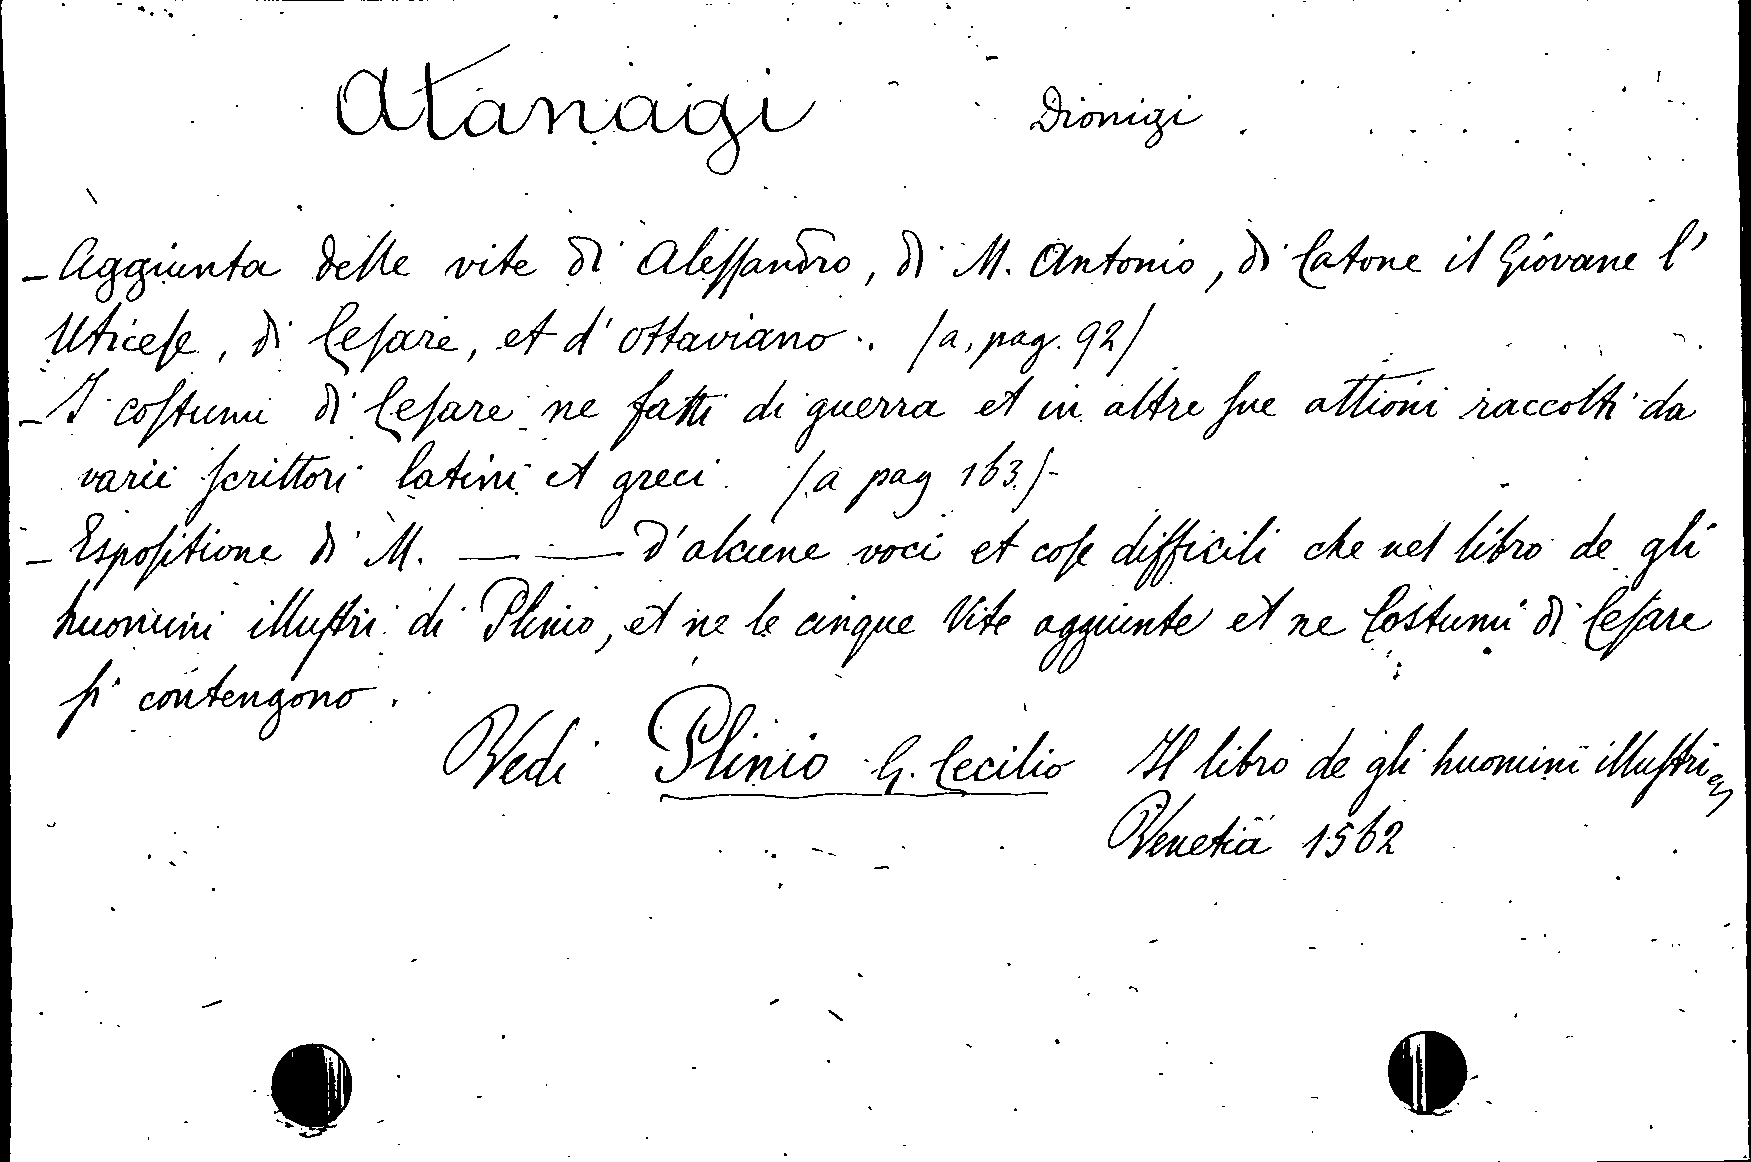 Atanagi Dionigi
- Aggiunta delle vite di Aleſſandro, di M. Antonio, di Catone il Giovane l'
Uticeſe, di Ceſare, et d'Ottaviano. (a, pag. 92)
- I coſtumi di Ceſare ne fatti di guerra et in altre ſue attioni raccolti da
varii ſcrittori latini et greci. (a pag 163)
- Espoſitione di M. —— —— d'alcune voci et coſe difficili che nel libro de gli
huomini illuſtri di Plinio, et ne le cinque Vite aggiunte et ne Costumi di Ceſare
ſi contengono.
Vedi Plinio G. Cecilio Il libro de gli huomini illuſtri
Venetia 1562